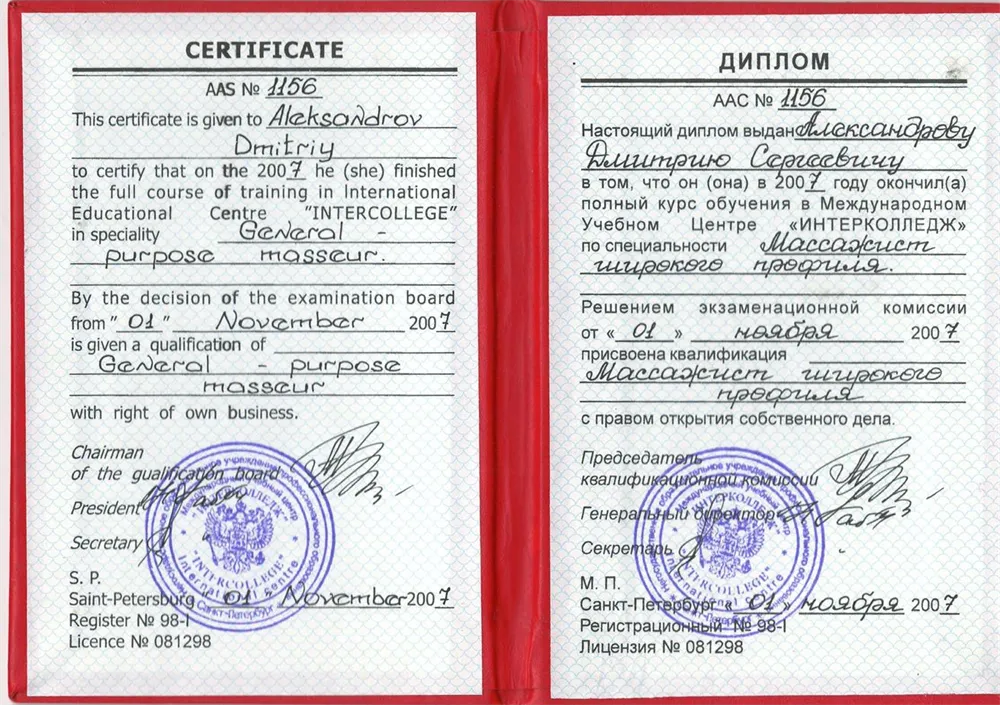 CERTIFICATE
AAS № 1156
This certificate is given to Aleksandrov
Dmitriy
to certify that on the 2007 he (she) finished
the full course of training in International
Educational Centre "INTERCOLLEGE"
in speciality General -
purpose masseur.
By the decision of the examination board
from "01" November 2007
is given a qualification of
General - purpose
masseur
with right of own business.
Chairman
of the qualification board
President
Secretary
S. P.
Saint-Petersburg "01" November 2007
Register № 98-I
Licence № 081298
"INTERCOLLEGE"
International Centre
Санкт-Петербург
ДИПЛОМ
ААС № 1156
Настоящий диплом выдан Александрову
Дмитрию Сергеевичу
в том, что он (она) в 2007 году окончил(а)
полный курс обучения в Международном
Учебном Центре «ИНТЕРКОЛЛЕДЖ»
по специальности Массажист
широкого профиля.
Решением экзаменационной комиссии
от «01» ноября 2007
присвоена квалификация
Массажист широкого
профиля
с правом открытия собственного дела.
Председатель
квалификационной комиссии
Генеральный директор
Секретарь
М. П.
Санкт-Петербург «01» ноября 2007
Регистрационный № 98-I
Лицензия № 081298
"ИНТЕРКОЛЛЕДЖ"
"INTERCOLLEGE"
International Centre